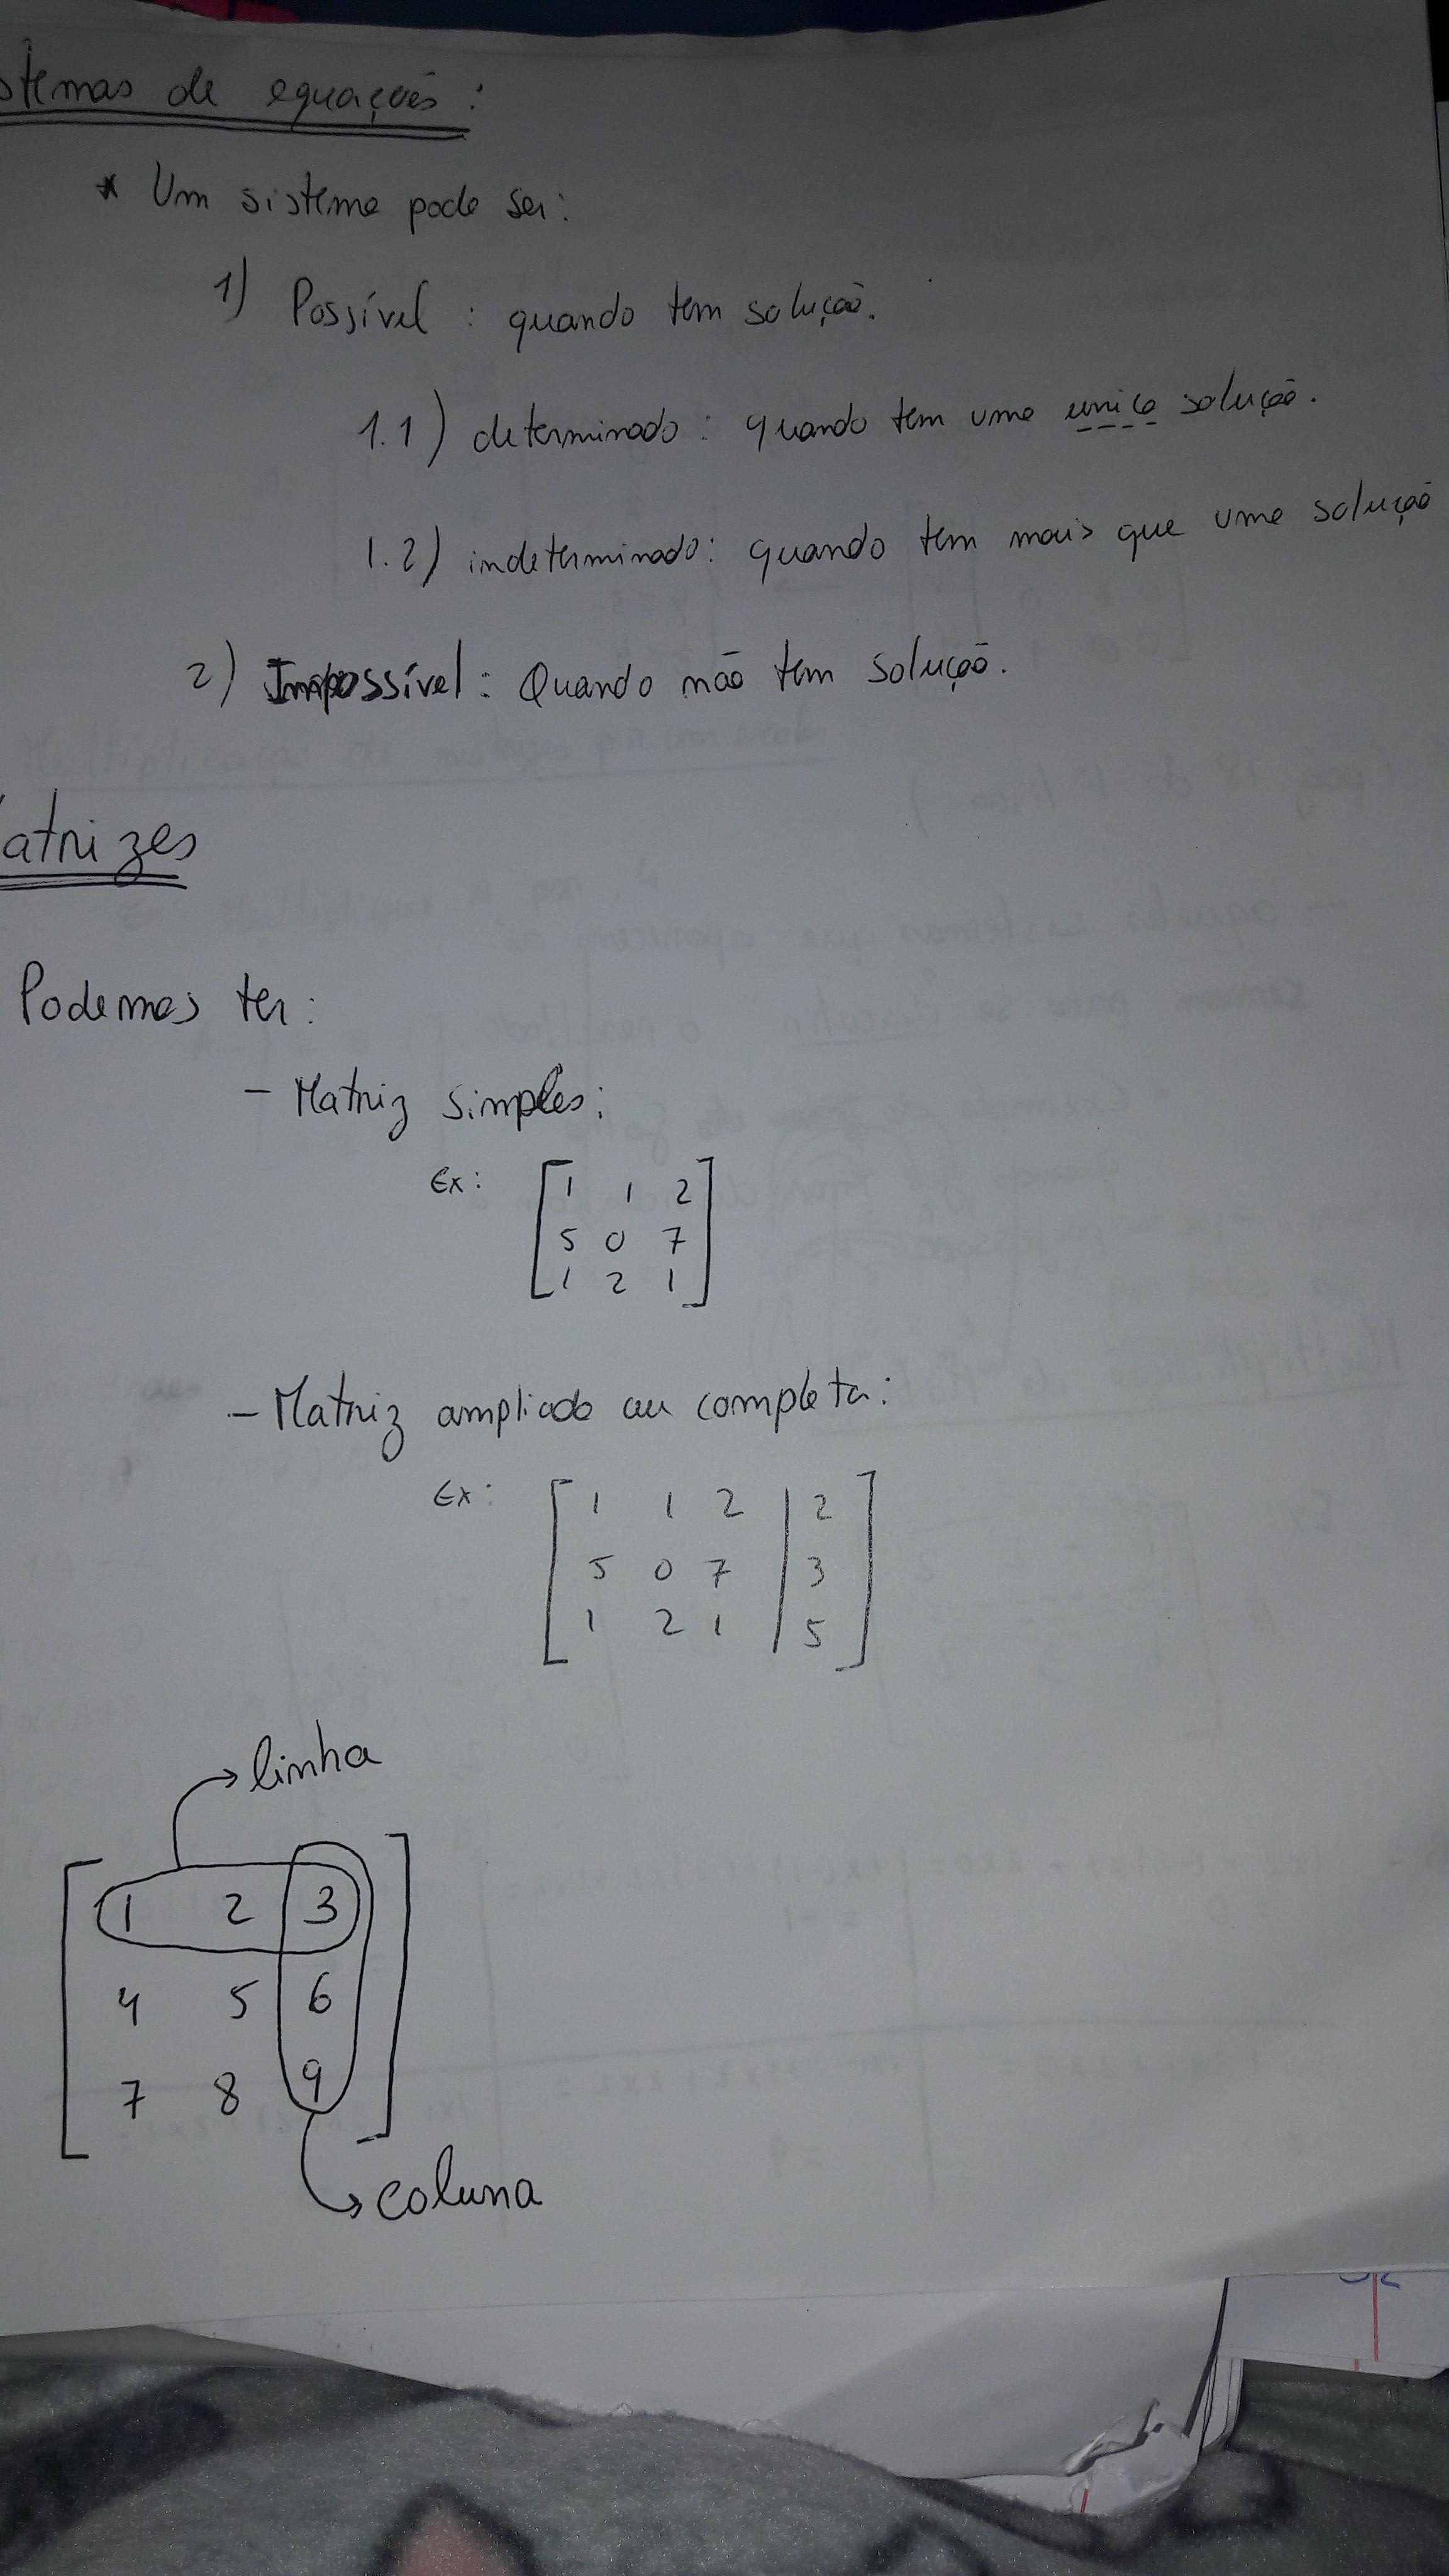 stemas de equações:
* Um sistema pode ser:
1) Possível : quando tem solução.
1.1) determinado : quando tem uma unica solução.
1.2) indeterminado: quando tem mais que uma solução
2) Impossível: Quando não tem solução.
atrizes
Podemos ter:
- Matriz simples:
Ex:
1 1 2
5 0 7
1 2 1
- Matriz ampliada ou completa:
Ex:
1 1 2 | 2
5 0 7 | 3
1 2 1 | 5
linha
1 2 3
4 5 6
7 8 9
coluna